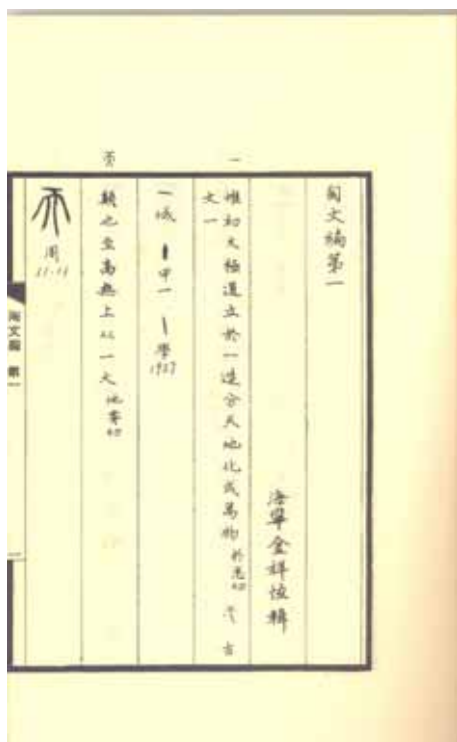 匋文編第一
海寧金祥恆輯
一
惟初大極道立於一造分天地化成萬物 於悉切 弌 古
文一
一 城 丨 甲一 丨 學
顛也至高無上从一大 他前切
周 11.11
匋文編 第一
一